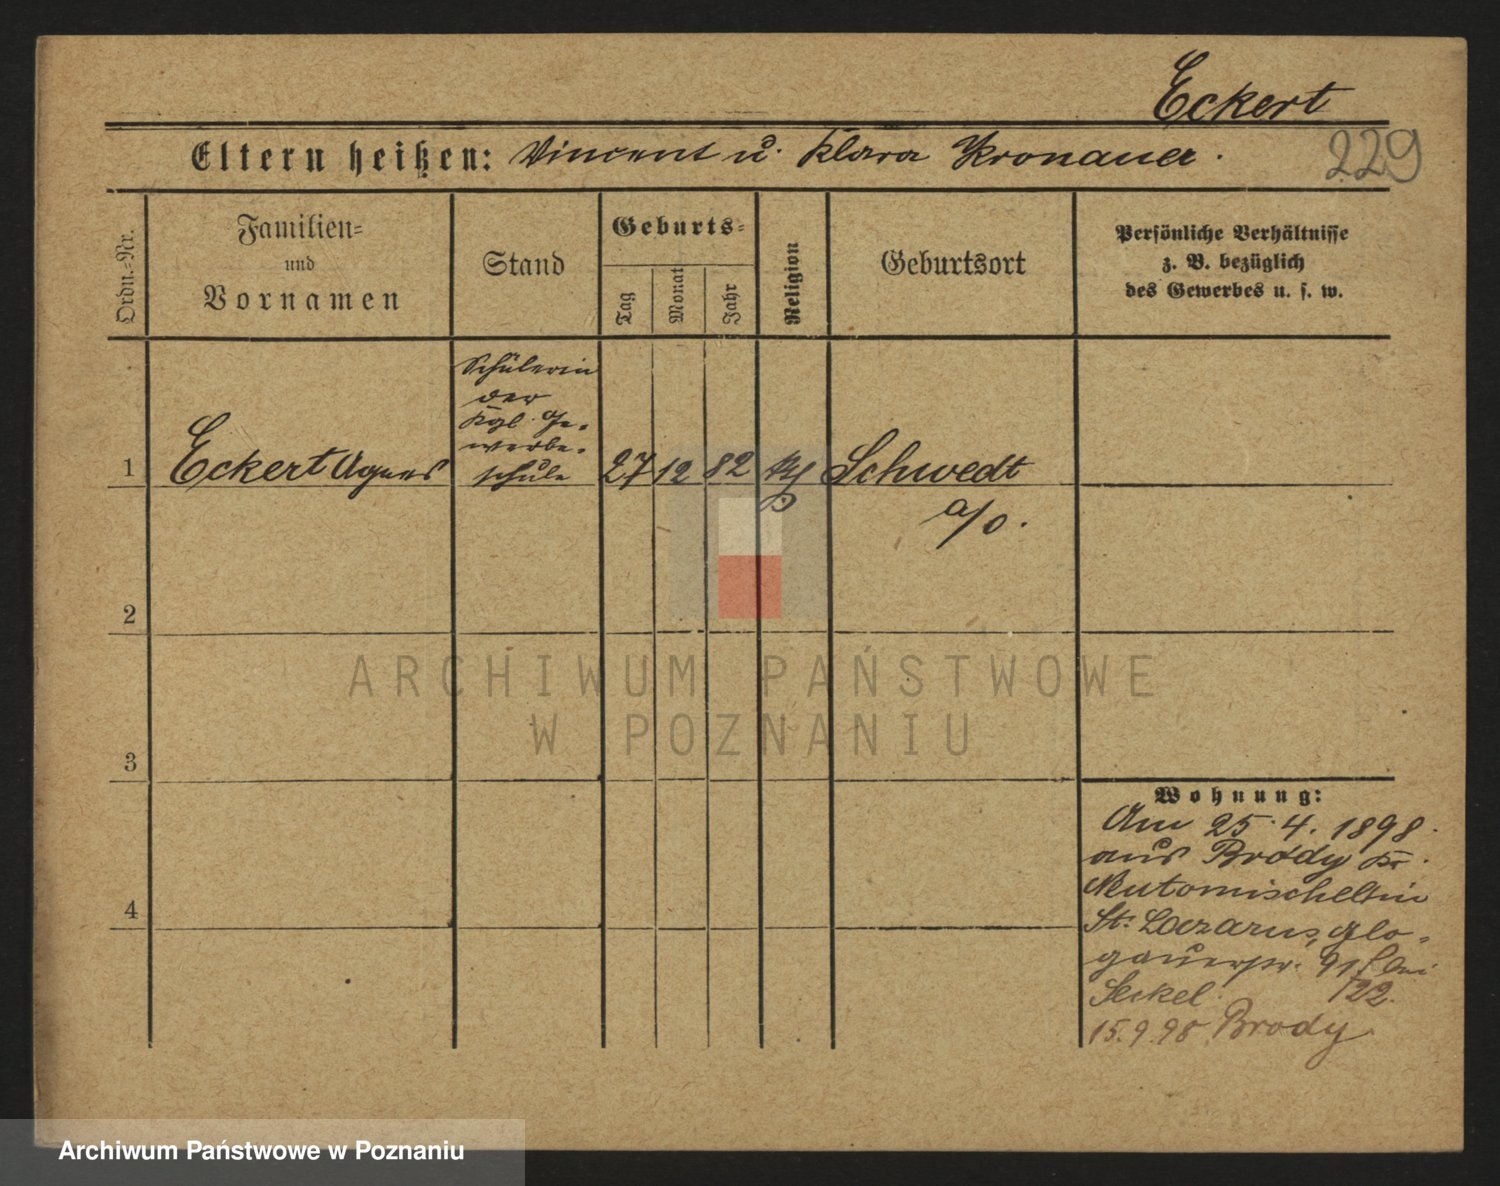 Eckert
Eltern heißen: Vincent u. Klara Kronauer.
229
Ordn.=Nr.
Familien=
und
Vornamen
Stand
Geburts=
Tag
Monat
Jahr
Religion
Geburtsort
Persönliche Verhältnisse
z. B. bezüglich
des Gewerbes u. s. w.
1
Eckert Agnes
Schülerin
der
Kgl. Ge-
werbe-
schule
27 12 82
Schwedt
a/O.
2
3
4
ARCHIWUM PAŃSTWOWE
W POZNANIU
Wohnung:
Am 25.4.1898.
aus Brody Kr.
Neutomischel in
St. Lazarus, Glo-
gauerstr. 91 bei
Seckel. 122.
15.9.98 Brody
Archiwum Państwowe w Poznaniu